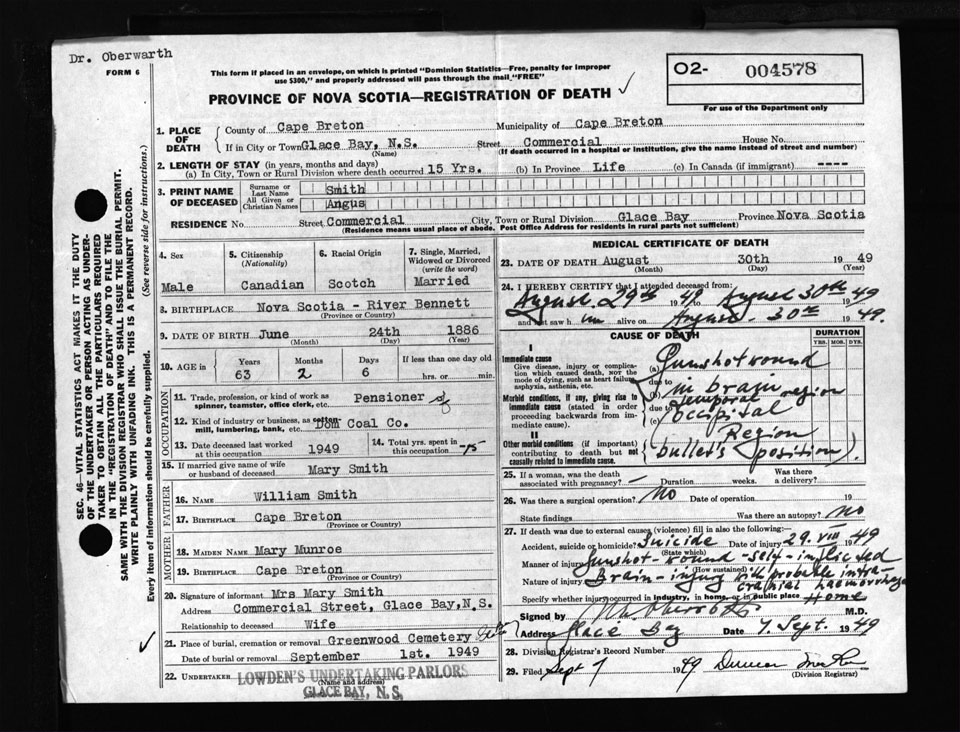 Dr. Oberwarth
FORM 6
This form if placed in an envelope, on which is printed "Dominion Statistics—Free, penalty for improper
use $300," and properly addressed will pass through the mail "FREE"
PROVINCE OF NOVA SCOTIA—REGISTRATION OF DEATH
O2- 004578
For use of the Department only
SEC. 46—VITAL STATISTICS ACT MAKES IT THE DUTY
OF THE UNDERTAKER OR PERSON ACTING AS UNDER-
TAKER TO OBTAIN ALL THE PARTICULARS REQUIRED
IN THE "REGISTRATION OF DEATH" AND TO FILE THE
SAME WITH THE DIVISION REGISTRAR WHO SHALL ISSUE THE BURIAL PERMIT.
WRITE PLAINLY WITH UNFADING INK. THIS IS A PERMANENT RECORD.
Every item of information should be carefully supplied. (See reverse side for instructions.)
1. PLACE OF DEATH
County of Cape Breton Municipality of Cape Breton
If in City or Town Glace Bay, N.S. Street Commercial House No.
(Name) (If death occurred in a hospital or institution, give the name instead of street and number)
2. LENGTH OF STAY (in years, months and days)
(a) In City, Town or Rural Division where death occurred 15 Yrs. (b) In Province Life (c) In Canada (if immigrant) ----
3. PRINT NAME OF DECEASED
Surname or Last Name Smith
All Given or Christian Names Angus
RESIDENCE No. Street Commercial City, Town or Rural Division Glace Bay Province Nova Scotia
(Residence means usual place of abode. Post Office Address for residents in rural parts not sufficient)
4. Sex 5. Citizenship (Nationality) 6. Racial Origin 7. Single, Married, Widowed or Divorced (write the word)
Male Canadian Scotch Married
8. BIRTHPLACE Nova Scotia - River Bennett
(Province or Country)
9. DATE OF BIRTH June 24th 1886
(Month) (Day) (Year)
10. AGE in Years Months Days If less than one day old
63 2 6 hrs. or min.
OCCUPATION
11. Trade, profession, or kind of work as
spinner, teamster, office clerk, etc. Pensioner
12. Kind of industry or business, as cotton-
mill, lumbering, bank, etc. Dom Coal Co.
13. Date deceased last worked at this occupation 1949 14. Total yrs. spent in this occupation
15. If married give name of wife
or husband of deceased Mary Smith
FATHER
16. NAME William Smith
17. BIRTHPLACE Cape Breton
(Province or Country)
MOTHER
18. MAIDEN NAME Mary Munroe
19. BIRTHPLACE Cape Breton
(Province or Country)
20. Signature of informant Mrs Mary Smith
Address Commercial Street, Glace Bay, N.S.
Relationship to deceased Wife
21. Place of burial, cremation or removal Greenwood Cemetery
Date of burial or removal September 1st. 1949
22. UNDERTAKER LOWDEN'S UNDERTAKING PARLORS
(Name and address)
GLACE BAY, N.S.
MEDICAL CERTIFICATE OF DEATH
23. DATE OF DEATH August 30th 1949
(Month) (Day) (Year)
24. I HEREBY CERTIFY that I attended deceased from:
August 29th 1949 to August 30th 1949
and last saw him alive on August 30th 1949.
CAUSE OF DEATH DURATION
YRS. MOS. DYS.
I
Immediate cause
Give disease, injury or complication which caused death, NOT the mode of dying, such as heart failure, asphyxia, asthenia, etc.
Morbid conditions, if any, giving rise to immediate cause (stated in order proceeding backwards from immediate cause).
II
Other morbid conditions (if important) contributing to death but not causally related to immediate cause.
(a) Gunshot wound
due to in brain
(b) temporal region
due to
(c) occipital
Region
(bullet's position)
25. If a woman, was the death associated with pregnancy? — Duration weeks. Was there a delivery?
26. Was there a surgical operation? No Date of operation 19
State findings Was there an autopsy? No
27. If death was due to external causes (violence) fill in also the following:
Accident, suicide or homicide? Suicide Date of injury 29. VIII 1949
(State which)
Manner of injury Gunshot-wound-self-inflicted
(How sustained)
Nature of injury Brain-injury with probable intra-
cranial haemorrhage
Specify whether injury occurred in industry, in home, or in public place Home
Signed by M.D.
Address Glace Bay Date 7. Sept. 1949
28. Division Registrar's Record Number
29. Filed Sept 7 1949 Duncan
(Division Registrar)